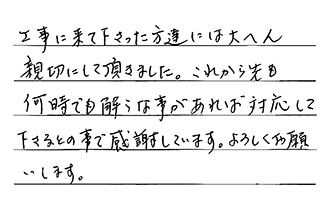 工事に来て下さった方達には大へん
親切にして頂きました。これから先も
何時でも解らな事があれば対応して
下さるとの事で感謝しています。よろしくお願
いします。